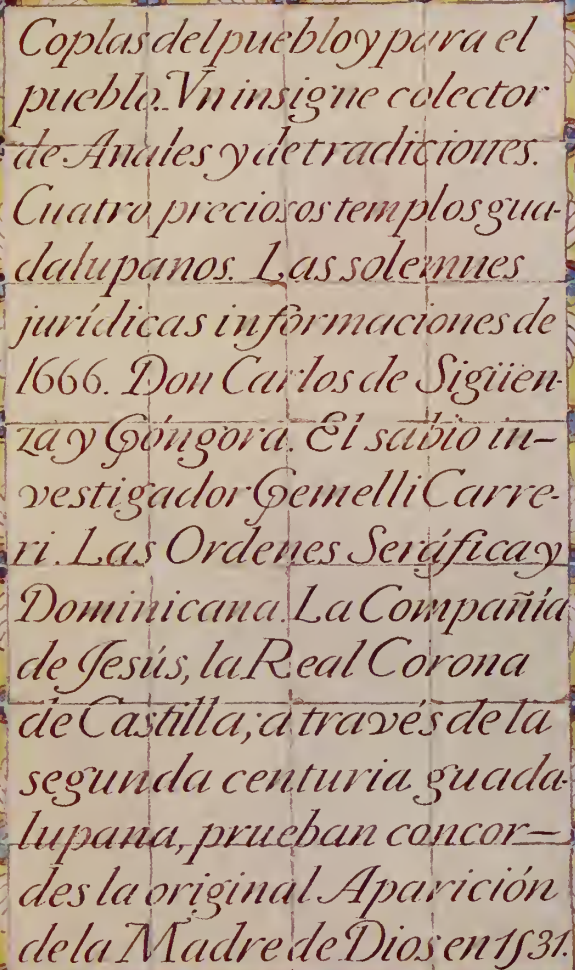 Coplas del pueblo y para el
pueblo. Vn insigne colector
de Anales y de tradiciones.
Cuatro preciosos templos gua-
dalupanos. Las solemnes
jurídicas informaciones de
1666. Don Carlos de Sigüen-
za y Góngora. El sabio in-
vestigador Gemelli Carre-
ri. Las Ordenes Seráfica y
Dominicana. La Compañía
de Jesús, la Real Corona
de Castilla; a través de la
segunda centuria guada-
lupana, prueban concor-
des la original Aparición
de la Madre de Dios en 1531.